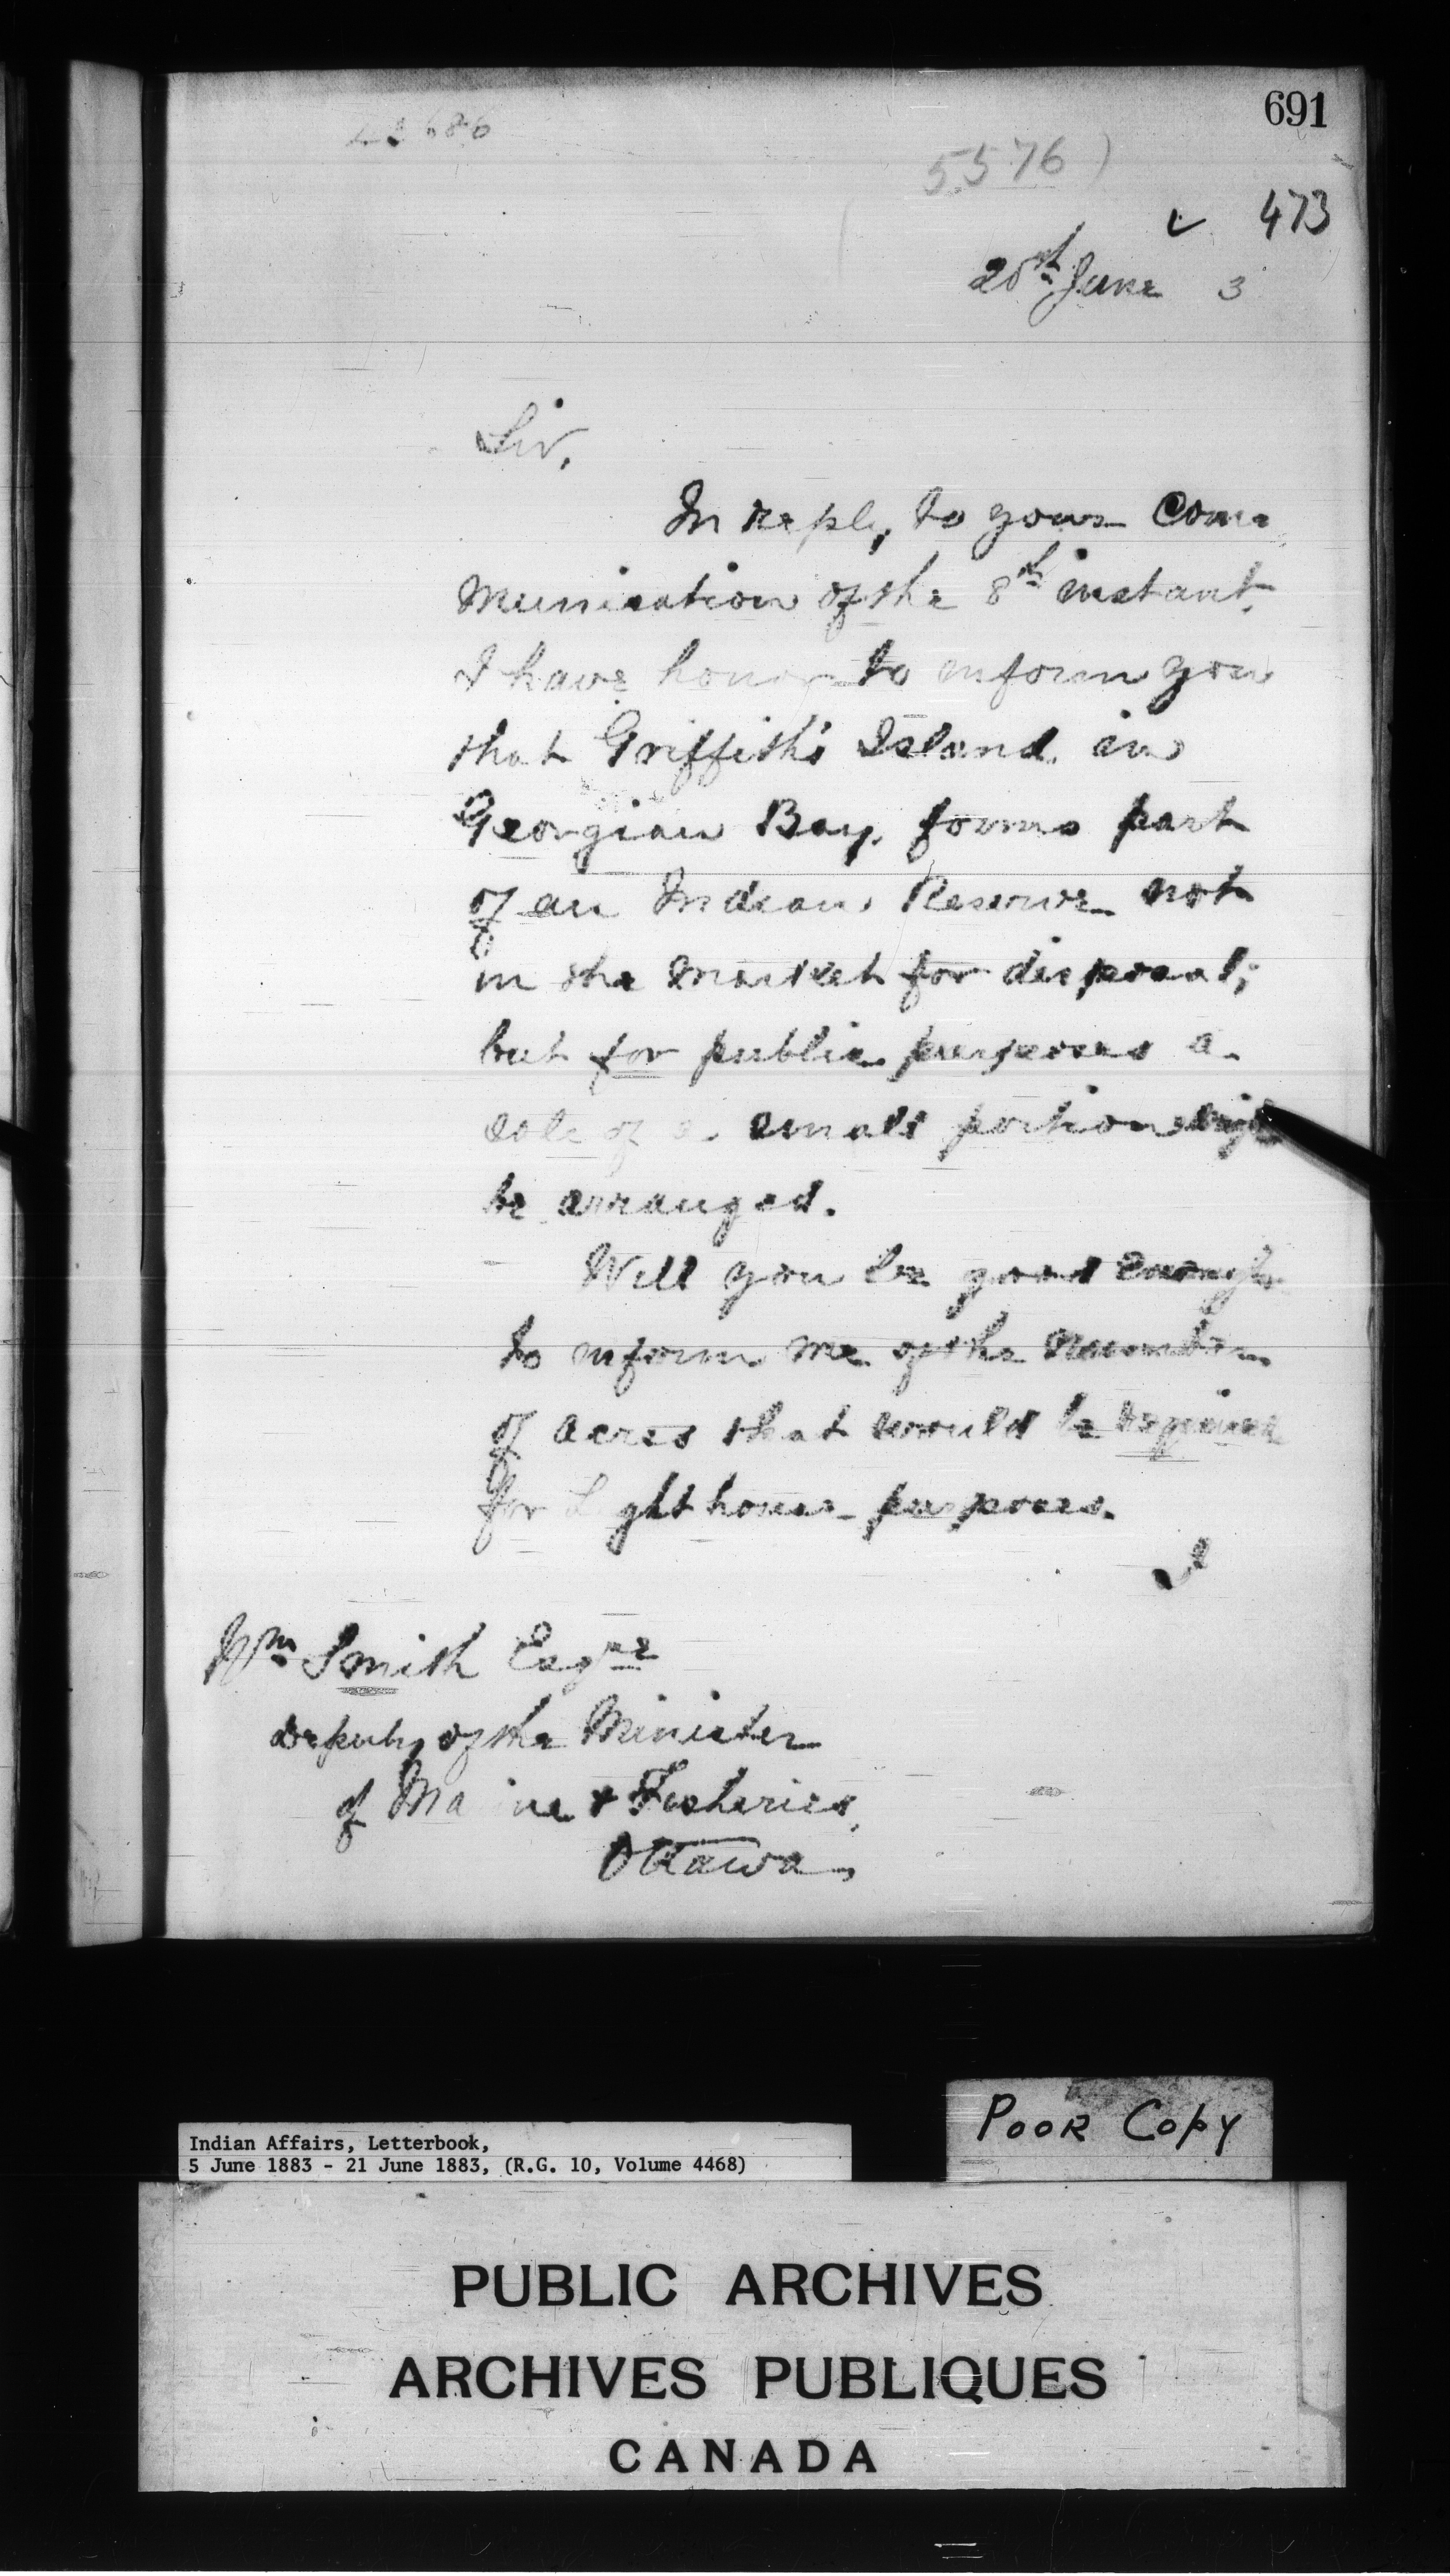 691
42686
5576)
473
20th June 3
Sir,
In reply, to your Com
munication of the 8th instant,
I have honor to inform you
that Griffith's Island in
Georgian Bay, forms part
of an Indian Reserve not
in the market for disposal;
but for public purposes a
sale of a small portion might
be arranged.
Will you be good enough
to inform me of the number
of acres that would be required
for Lighthouse purposes.
I
Wm Smith Esqre
Deputy of the Minister
of Marine & Fisheries,
Ottawa,
POOR COPY
Indian Affairs, Letterbook,
5 June 1883 - 21 June 1883, (R.G. 10, Volume 4468)
PUBLIC ARCHIVES
ARCHIVES PUBLIQUES
CANADA